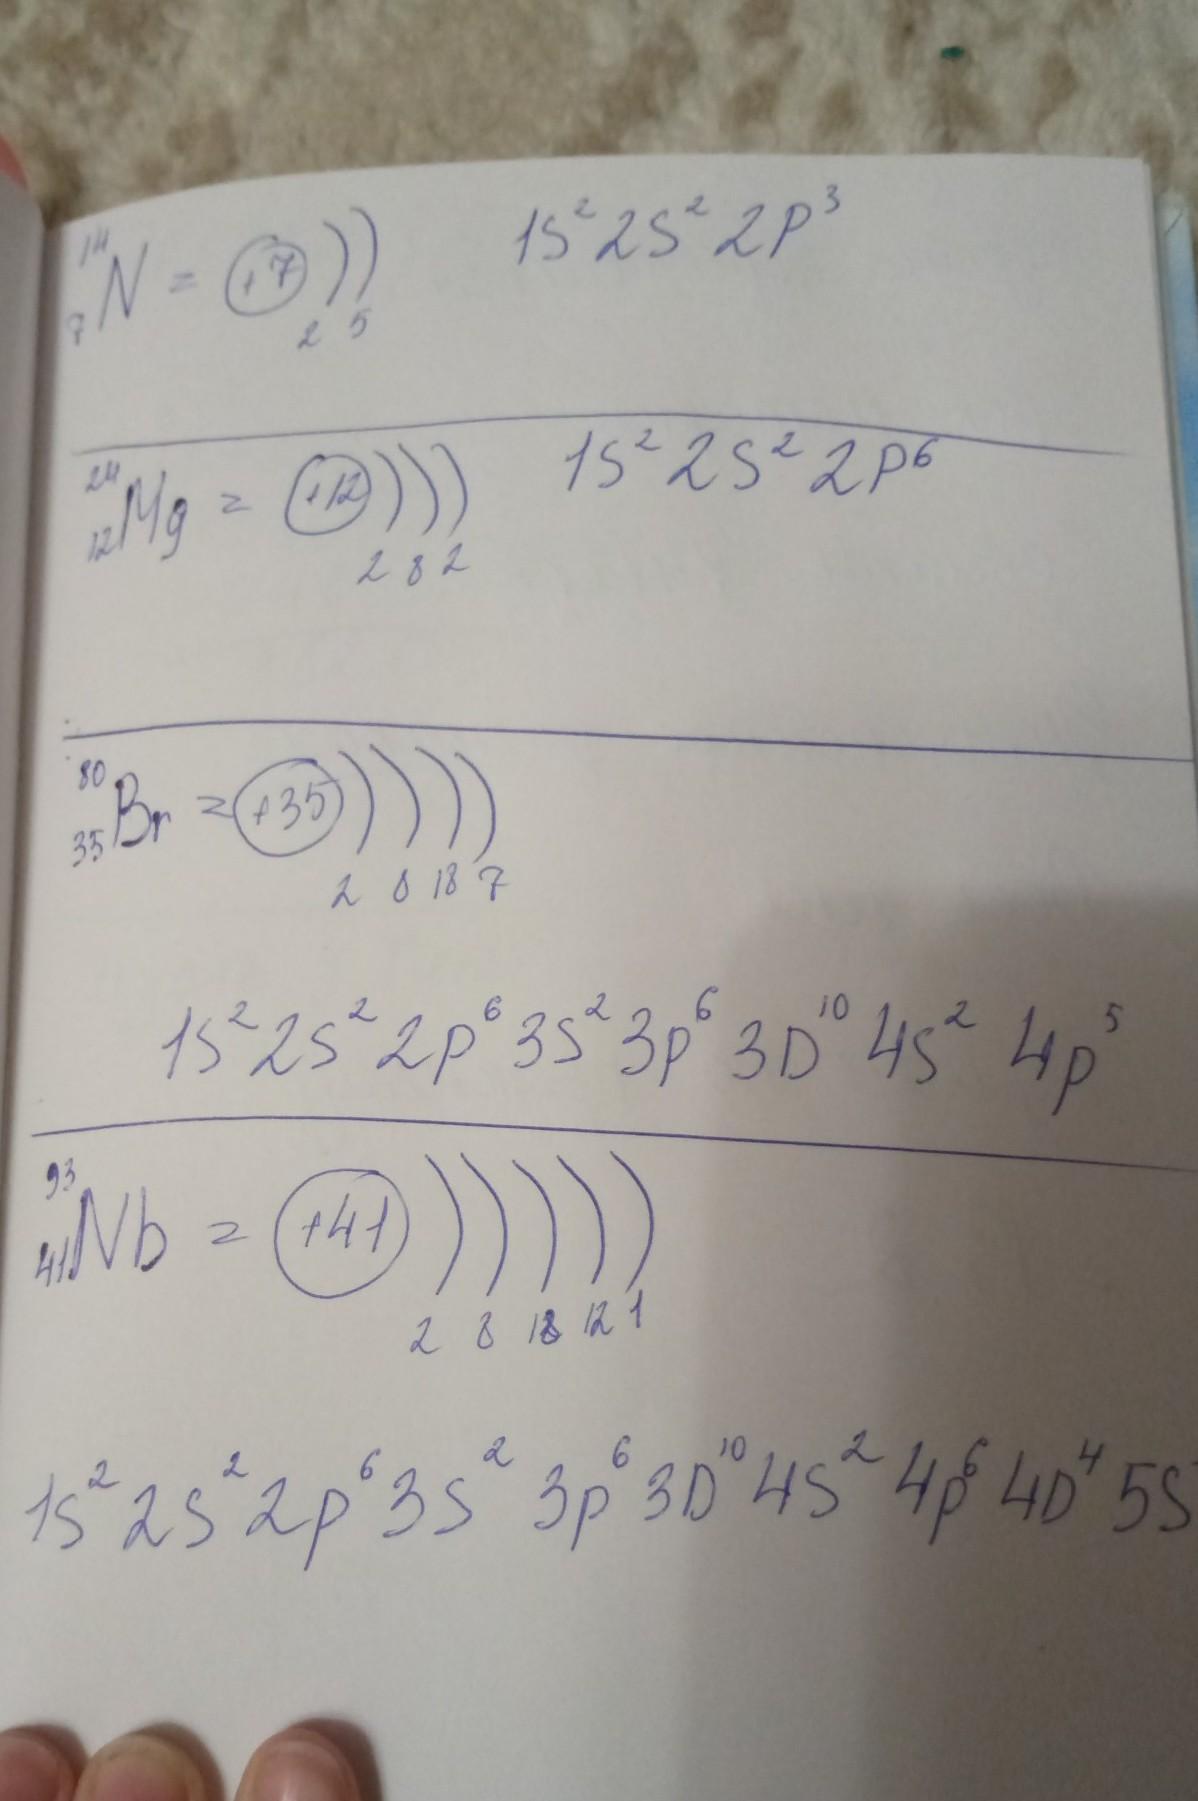 ¹⁴₇N = (+7))) 1s² 2s² 2p³
2 5
²⁴₁₂Mg = (+12)))) 1s² 2s² 2p⁶
2 8 2
⁸⁰₃₅Br = (+35)))))
2 8 18 7
1s² 2s² 2p⁶ 3s² 3p⁶ 3D¹⁰ 4s² 4p⁵
⁹³₄₁Nb = (+41))))))
2 8 18 12 1
1s² 2s² 2p⁶ 3s² 3p⁶ 3D¹⁰ 4s² 4p⁶ 4D⁴ 5s